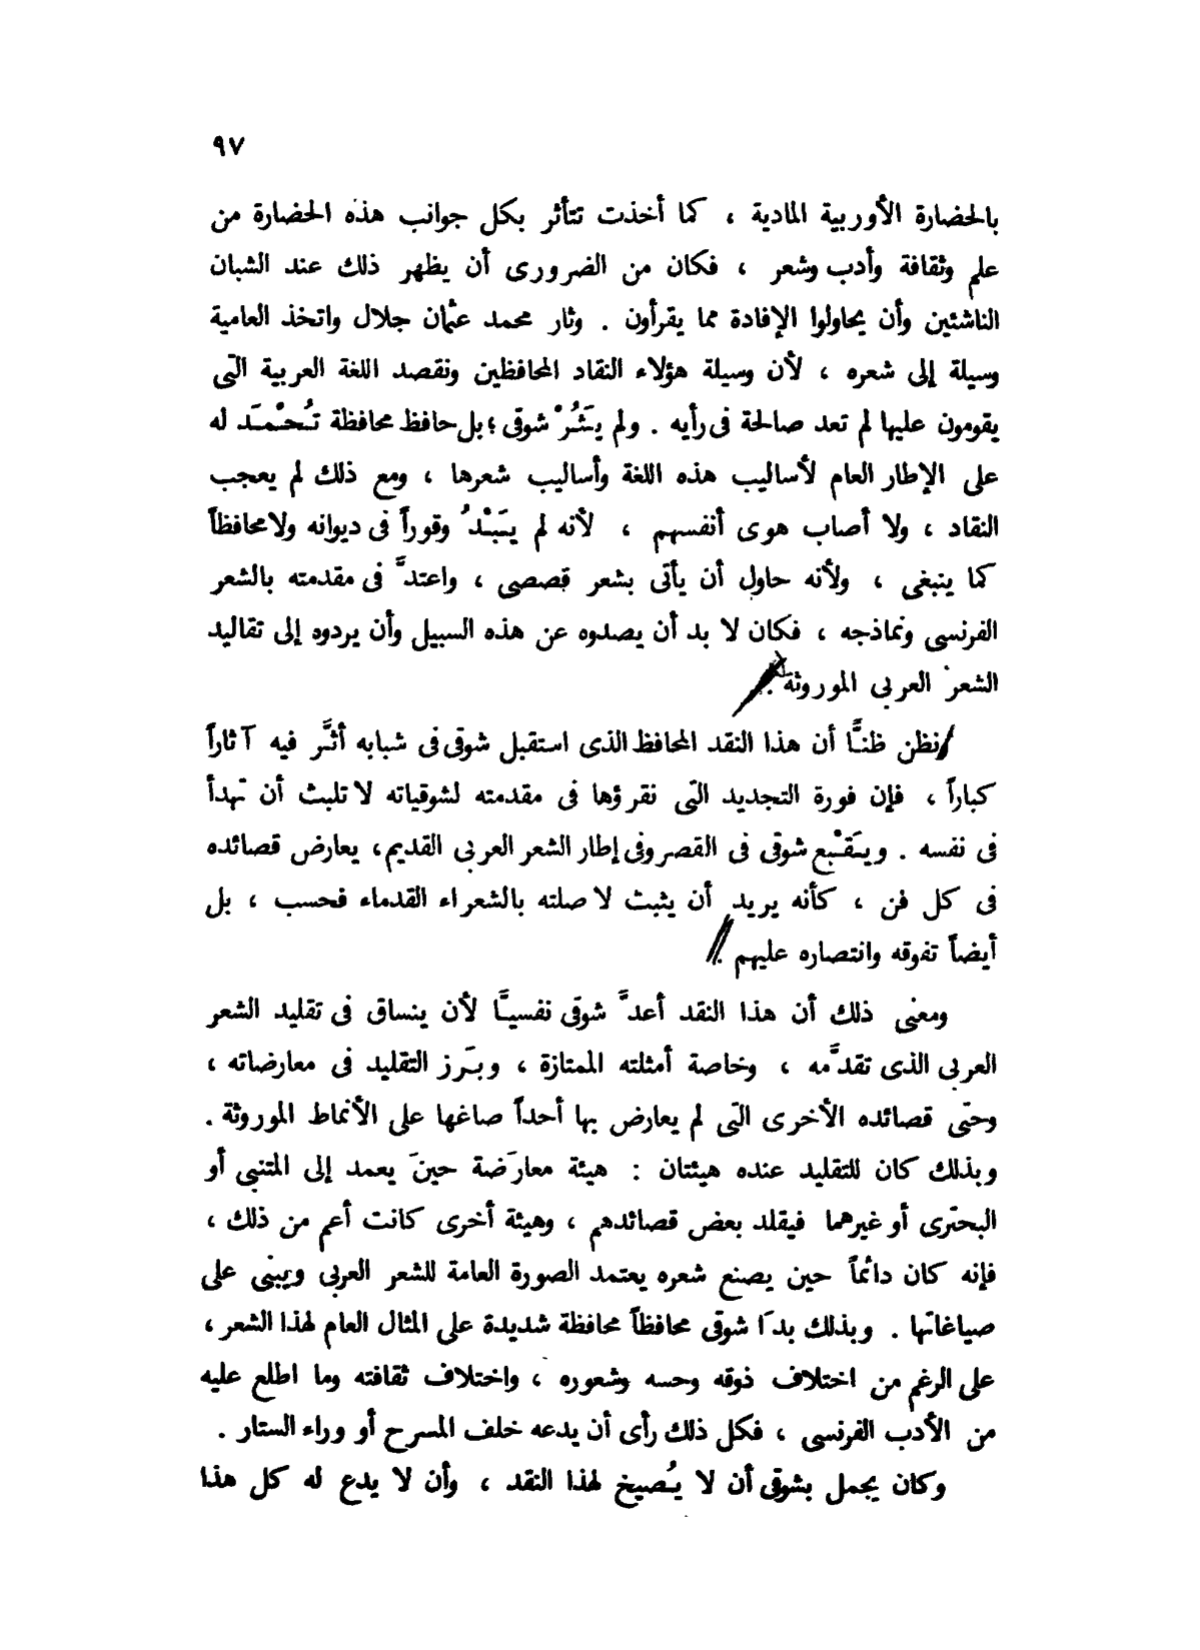 ٩٧
بالحضارة الأوربية المادية ، كما أخذت تتأثر بكل جوانب هذه الحضارة من
علم وثقافة وأدب وشعر ، فكان من الضرورى أن يظهر ذلك عند الشبان
الناشئين وأن يحاولوا الإفادة مما يقرأون . وثار محمد عثمان جلال واتخذ العامية
وسيلة إلى شعره ، لأن وسيلة هؤلاء النقاد المحافظين ونقصد اللغة العربية التى
يقومون عليها لم تعد صالحة فى رأيه . ولم يَثُرْ شوقى ؛ بل حافظ محافظة تُحْمَد له
على الإطار العام لأساليب هذه اللغة وأساليب شعرها ، ومع ذلك لم يعجب
النقاد ، ولا أصاب هوى أنفسهم ، لأنه لم يَبْدُ وقوراً فى ديوانه ولا محافظاً
كما ينبغى ، ولأنه حاول أن يأتى بشعر قصصى ، واعتدَّ فى مقدمته بالشعر
الفرنسى ونماذجه ، فكان لا بد أن يصدوه عن هذه السبيل وأن يردوه إلى تقاليد
الشعر العربى الموروثة .
ونظن ظنًّا أن هذا النقد المحافظ الذى استقبل شوقى فى شبابه أثَّر فيه آثاراً
كباراً ، فإن فورة التجديد التى نقرؤها فى مقدمته لشوقياته لا تلبث أن تهدأ
فى نفسه . ويَقْبع شوقى فى القصر وفى إطار الشعر العربى القديم، يعارض قصائده
فى كل فن ، كأنه يريد أن يثبت لا صلته بالشعراء القدماء فحسب ، بل
أيضاً تفوقه وانتصاره عليهم .
ومعنى ذلك أن هذا النقد أعدَّ شوقى نفسيًّا لأن ينساق فى تقليد الشعر
العربى الذى تقدَّمه ، وخاصة أمثلته الممتازة ، وبَرز التقليد فى معارضاته ،
وحتى قصائده الأخرى التى لم يعارض بها أحداً صاغها على الأنماط الموروثة .
وبذلك كان للتقليد عنده هيئتان : هيئة معارَضة حينَ يعمد إلى المتنبى أو
البحترى أو غيرهما فيقلد بعض قصائدهم ، وهيئة أخرى كانت أعم من ذلك ،
فإنه كان دائماً حين يصنع شعره يعتمد الصورة العامة للشعر العربى ويبنى على
صياغاتها . وبذلك بدَا شوقى محافظاً محافظة شديدة على المثال العام لهذا الشعر ،
على الرغم من اختلاف ذوقه وحسه وشعوره ، واختلاف ثقافته وما اطلع عليه
من الأدب الفرنسى ، فكل ذلك رأى أن يدعه خلف المسرح أو وراء الستار .
وكان يجمل بشوقى أن لا يُصيخ لهذا النقد ، وأن لا يدع له كل هذا